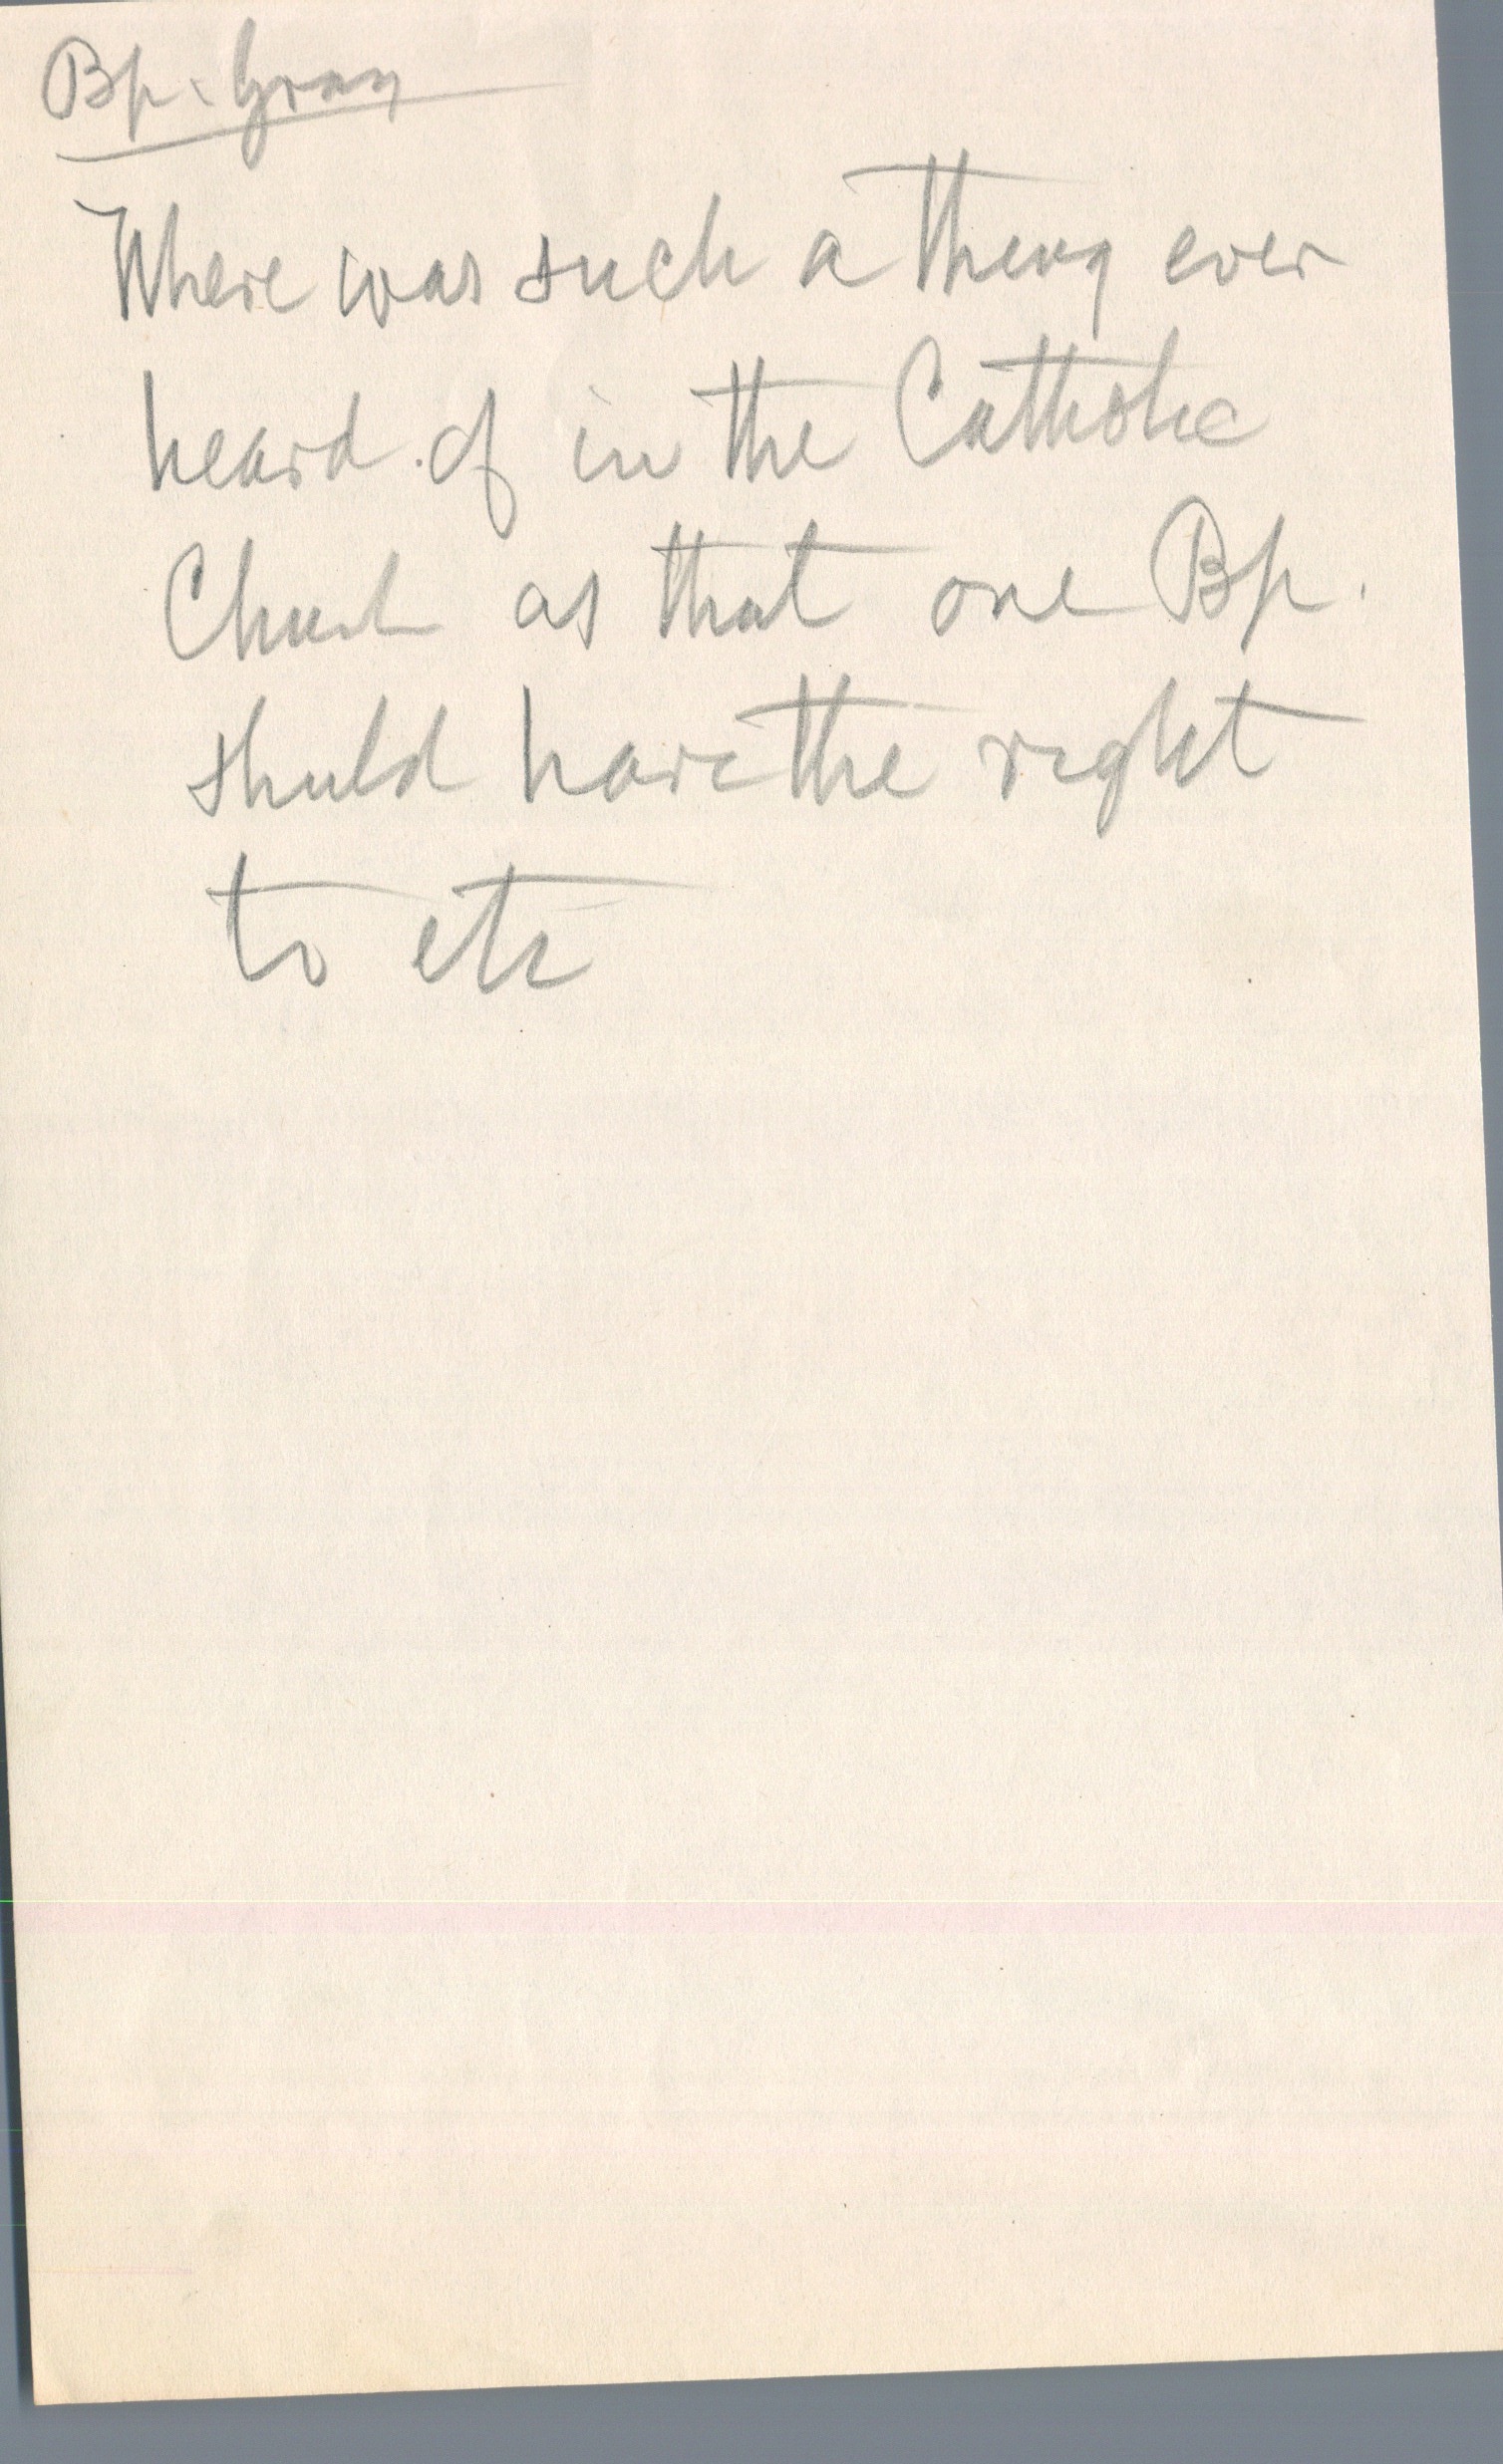 Bp. Gray
Where was such a thing ever
heard of in the Catholic
Church as that one Bp.
should have the right
to etc